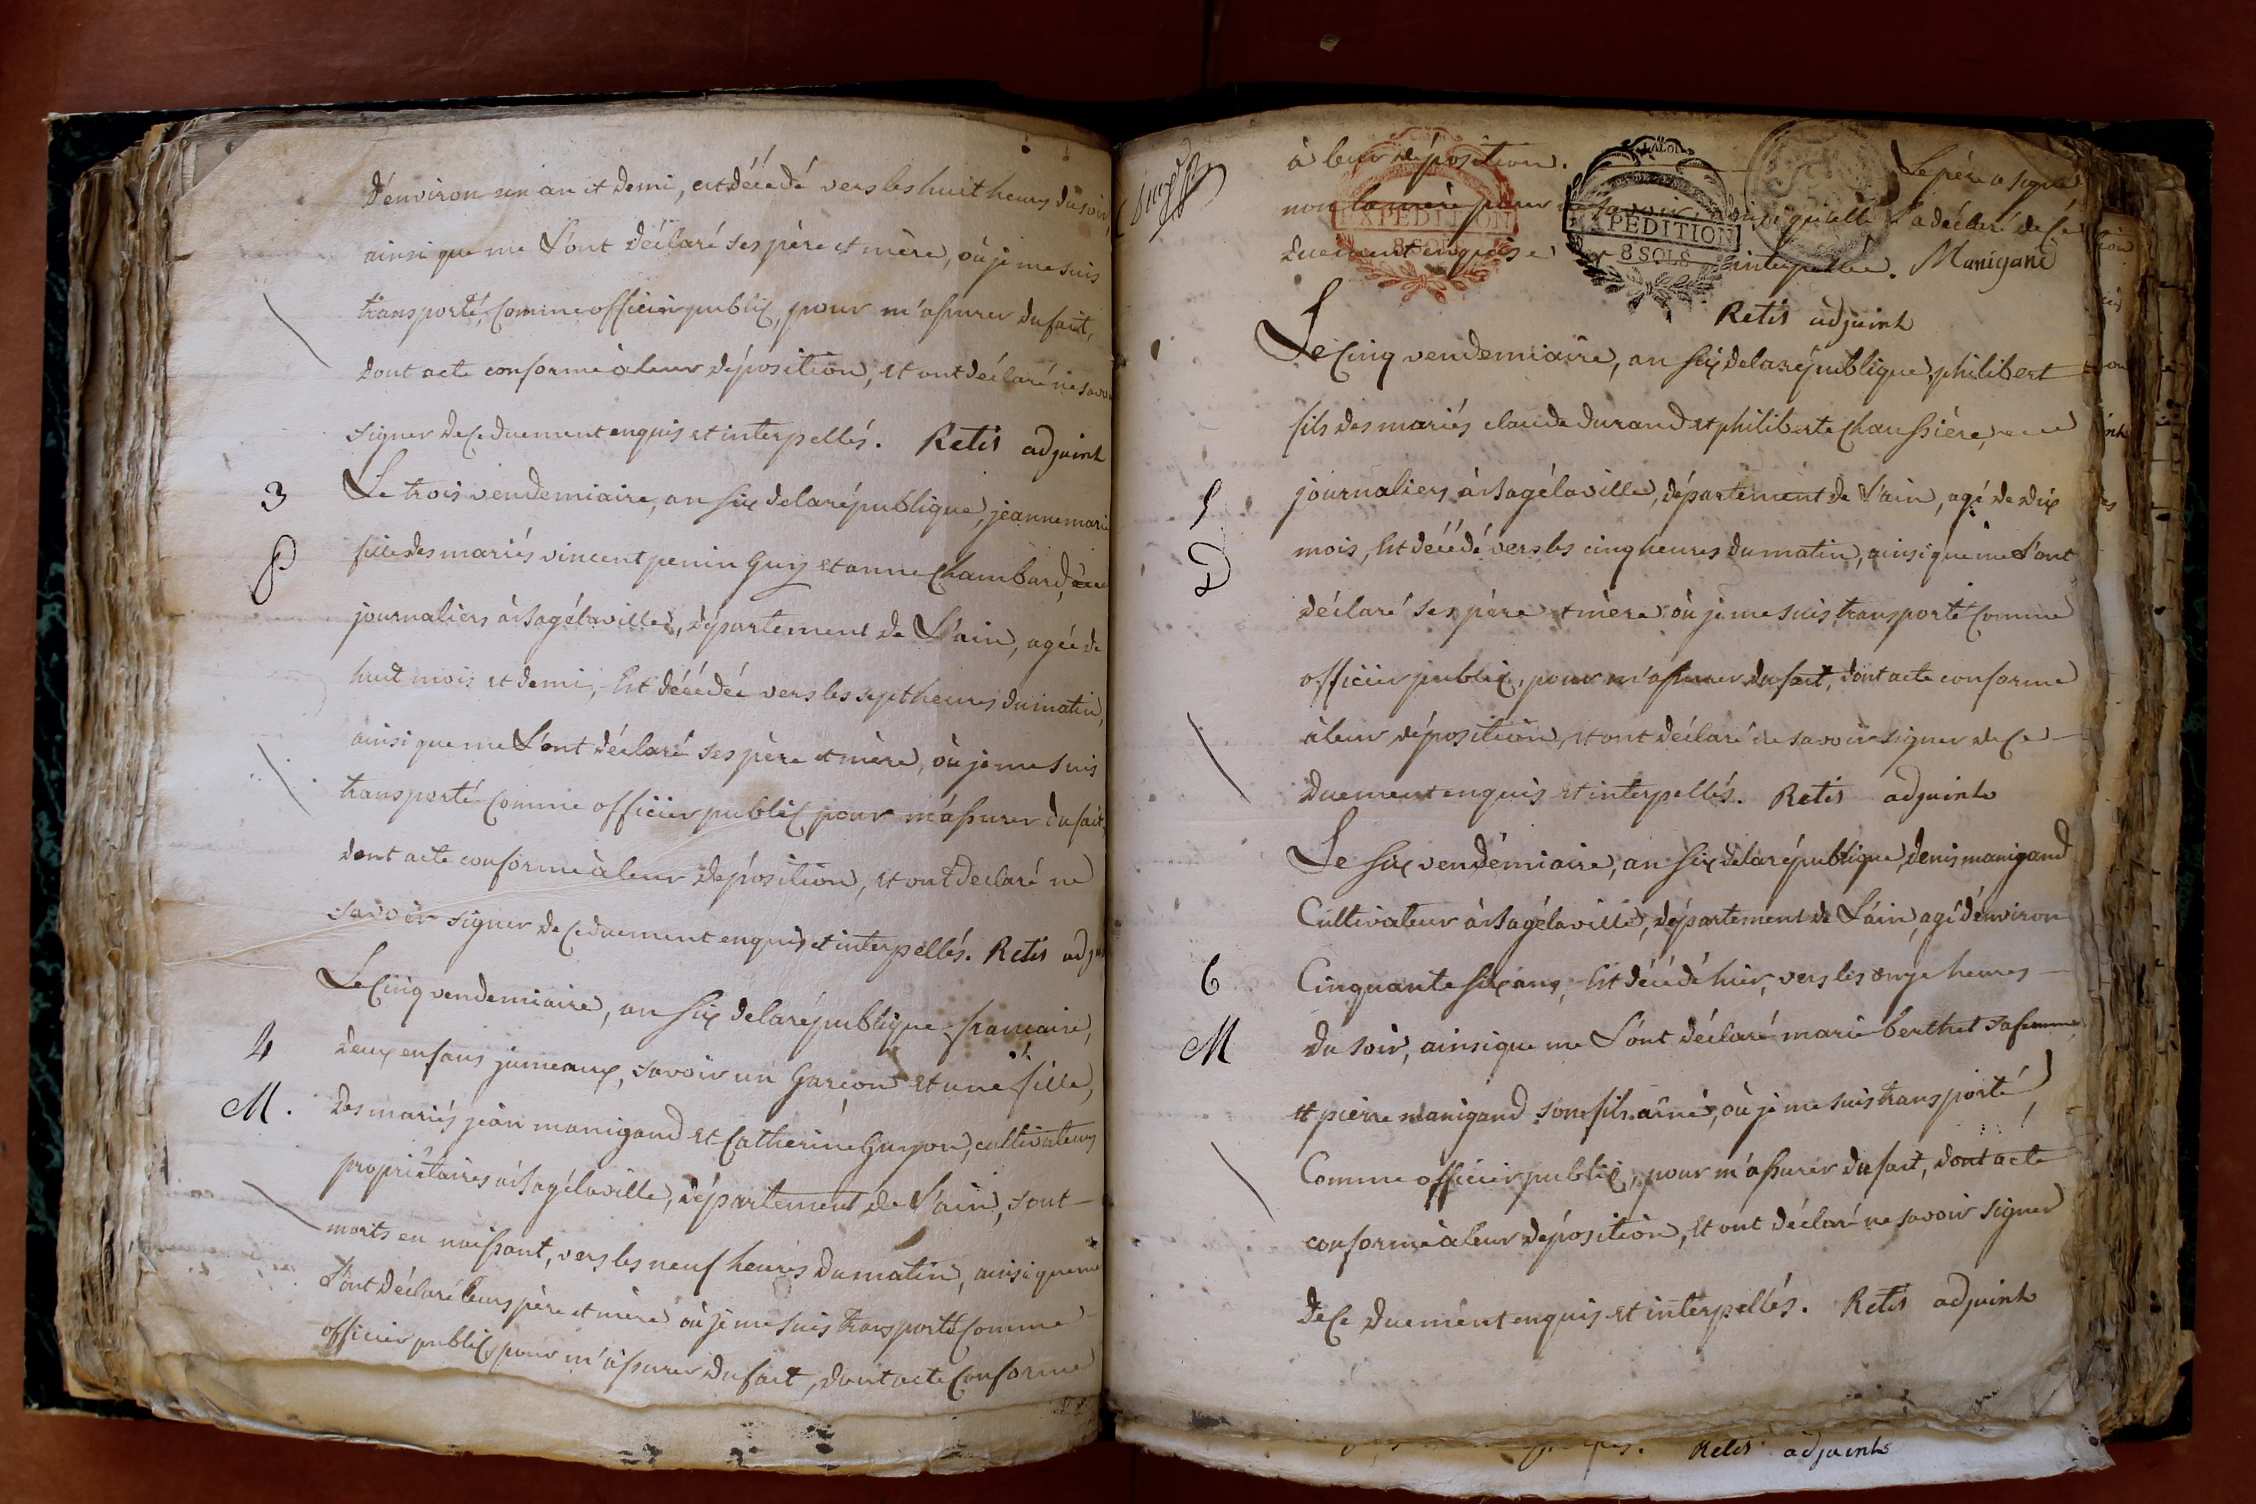 d'environ un an et demi, est décédé vers les huit heures du soir,
ainsi que me l'ont déclaré ses père et mère, où je me suis
transporté, comme officier public, pour m'assurer du fait,
dont acte conforme à leur déposition, et ont déclaré ne savoir
signer de ce duement enquis et interpellés. Retis adjoint
3
Le trois vendemiaire, an six de la république, jeanne marie
P
fille des mariés vincent penin Guy et anne Chambard,
journaliers à Bagé la ville, département de L'ain, agée de
huit mois et demi, Est décédée vers les sept heures du matin,
ainsi que me L'ont déclaré ses père et mère, où je me suis
transporté comme officier public pour m'assurer du fait,
dont acte conforme à leur déposition, et ont declaré ne
savoir signer de ce duement enquis et interpellés. Retis adj
Le Cinq vendemiaire, an six de la république francaise,
4
deux enfans jumeaux, savoir un Garcon et une fille,
M.
des mariés jean manigand et Catherine Guyon, cultivateurs
propriétaires à Bagé la ville, département de L'ain, sont
morts en naissant, vers les neuf heures du matin, ainsi que me
l'ont déclaré leurs père et mère où je me suis transporté comme
officier public, pour m'assurer du fait, dont acte conforme
à leur déposition. Le père a signé
non la mère pour ne savoir, ainsi qu'elle l'a déclaré de ce
duement enquise interpellée. Manigand
LA LOI
EXPEDITION
8 SOLS
EXPEDITION
8 SOLS
Retis adjoint
Le Cinq vendemiaire, an six de la république, philibert
fils des mariés claude durand et philiberte Chaussière,
5
journaliers à Bagé la ville, département de L'ain, agé de dix
D
mois, Est décédé vers les cinq heures du matin, ainsi que me l'ont
déclaré ses père et mère où je me suis transporté comme
officier public, pour m'assurer du fait, dont acte conforme
à leur déposition, et ont déclaré ne savoir signer de ce
duement enquis et interpellés. Retis adjoint
Le six vendémiaire, an six de la république, denis manigand
Cultivateur à Bagé la ville, département de L'ain, agé d'environ
6
Cinquante six ans, Est décédé hier, vers les onze heures
M
du soir, ainsi que me L'ont déclaré marie berthet sa femme,
et pierre manigand son fils aîné, où je me suis transporté
Comme officier public, pour m'assurer du fait, dont acte
conforme à leur déposition, et ont déclaré ne savoir signer
de ce duement enquis et interpellés. Retis adjoint
Retis adjoint